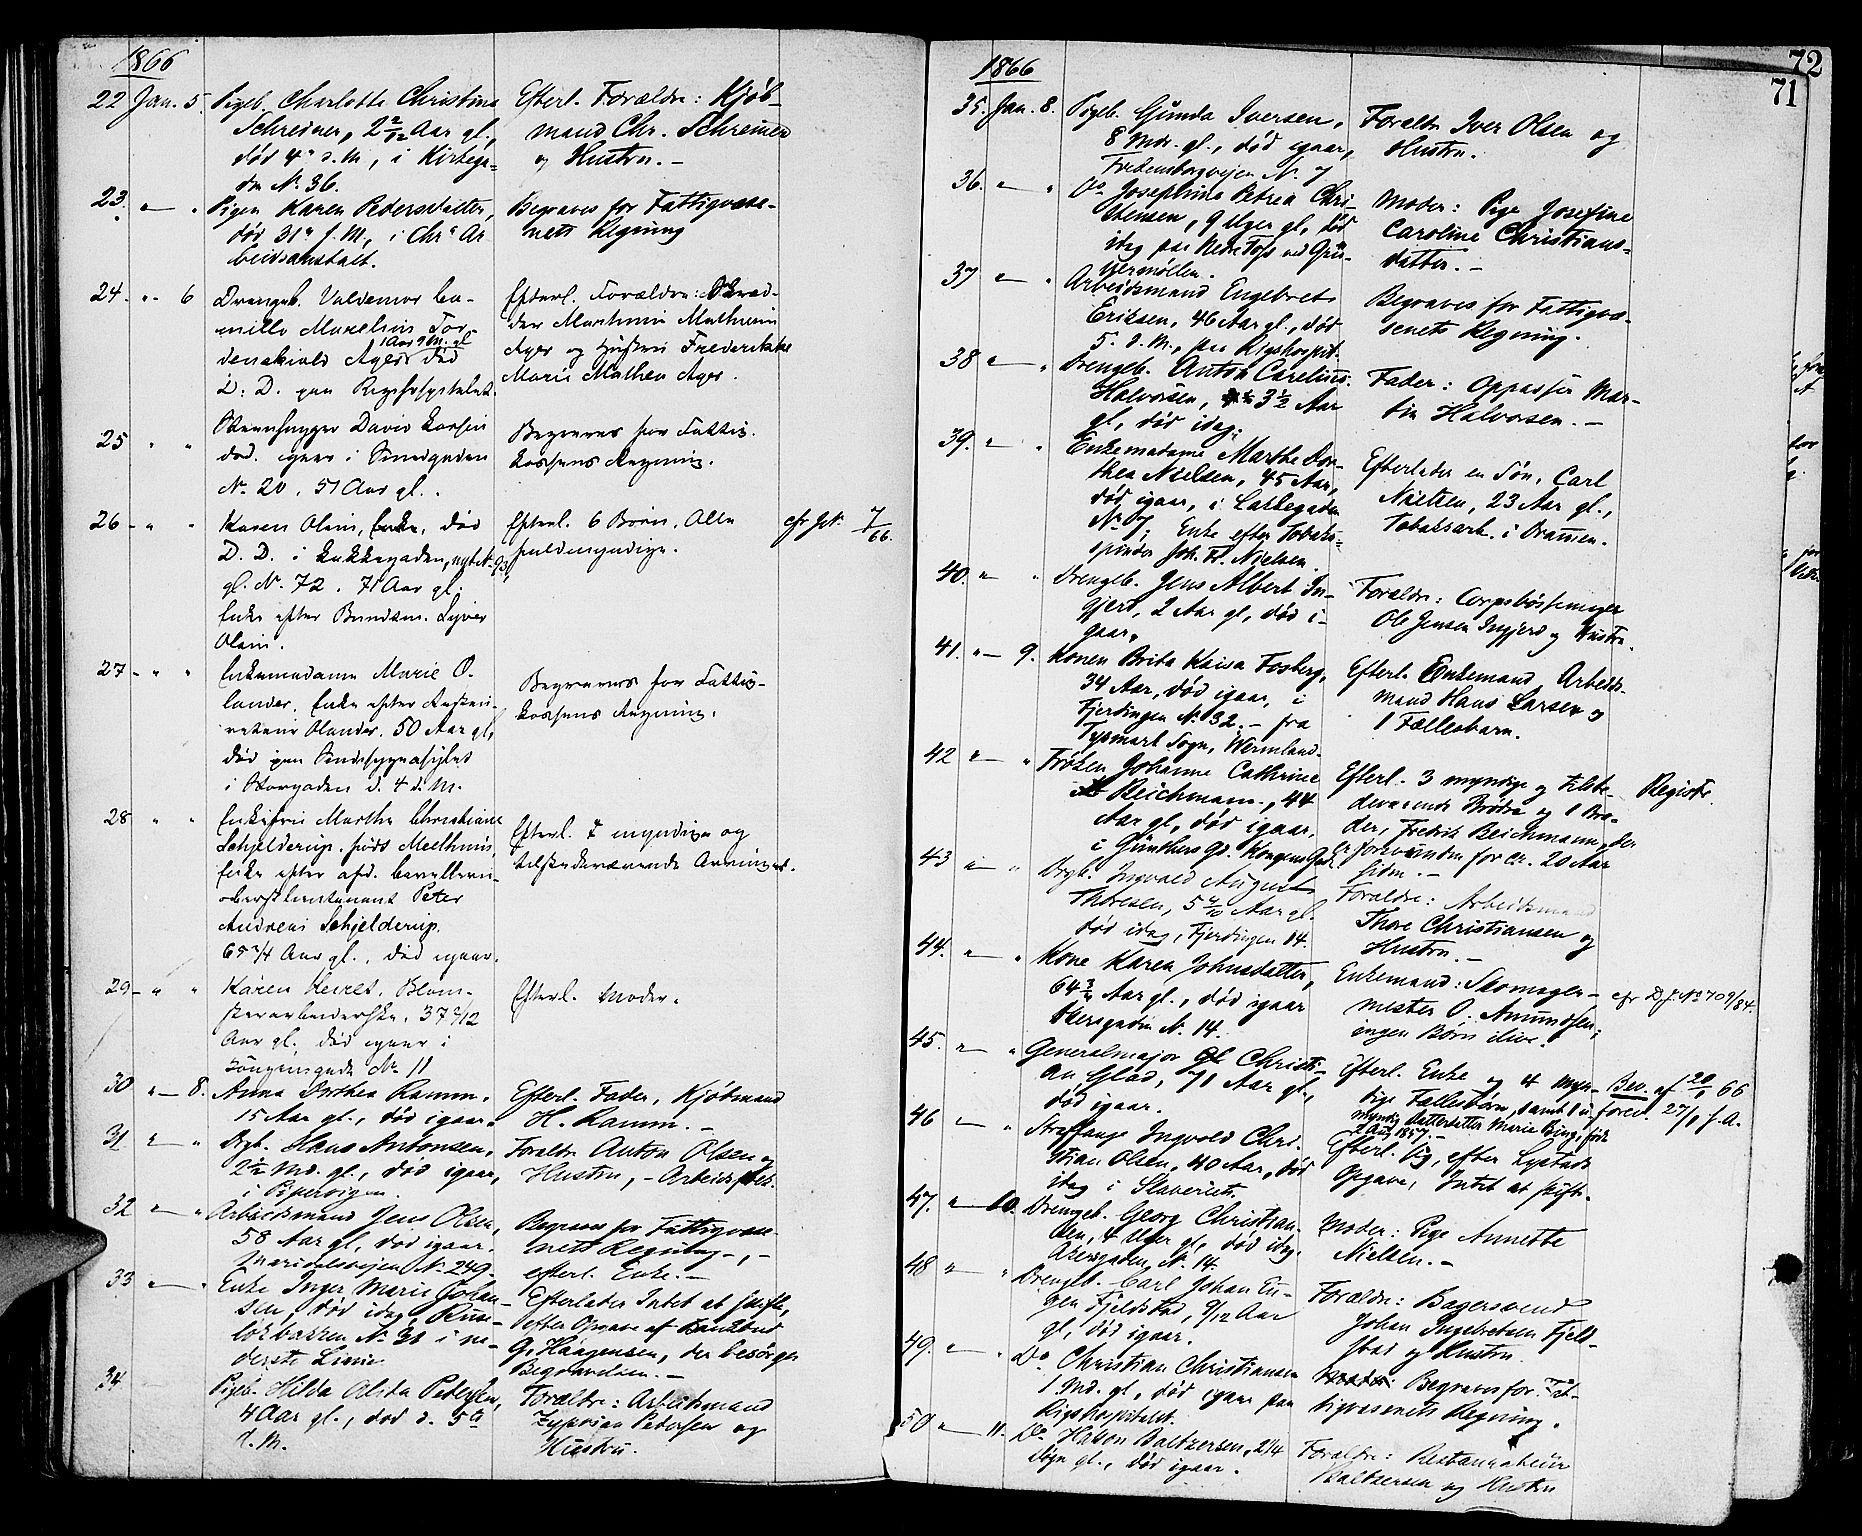 1866
22 Jan. 5. Pigeb. Charlotte Christina
Schreiner, 2 2/12 Aar gl.,
død 4de d. M., i Kirkega-
den No. 36.
Efterl. Forældre: Kjøb-
mand Chr. Schreiner
og Hustru. -
23. " " Pigen Karen Pedersdatter,
død 31te f. M., i Chra Ar-
beidsanstalt.
Begraves for Fattigvæse-
nets Regning
24 - " - 6 Drengeb. Valdemar Ca-
millo Marelius Tor-
1 Aar 9 M. gl
denskiold Ager død
D. D. paa Rigshospitalet.
Efterl. Forældre: Skræd-
der Marthin Mathesen
Ager og Hustru Frederikke
Marie Mathea Ager.
25 " " David Larsen
død igaar i Smedgaden
No. 20, 51 Aar gl.
Begraves for Fattig-
kassens Regning.
26 - " " Karen Olsen, Enke, død
D. D. i Lakkegaden, nyt No. 93,
gl. No. 72. 71 Aar gl.
Enke efter Bundtm. Syver
Olsen.
Efterl. 6 Børn, Alle
fuldmyndige.
cfr 7/66.
27 - " " Enkemadame Marie O-
lander, Enke efter Restau-
rateur Olander. 50 Aar gl,
død paa Sindssygeasylet
i Storgaden d. 4 d. M.
Begraves for Fattig-
kassens Regning.
28 " " Enkefru Marthe Christiane
Schjelderup, født Mellhuus,
Enke efter afd. Cavalleri-
oberstlieutenant Peter
Andreas Schjelderup.
65 3/4 Aar gl., død igaar.
Efterl. 7 myndige og
tilstedeværende Arvinger.
29 - " " Karen Blom-
sterarbeiderske, 37 2/12
Aar gl. død igaar i
No 11
Efterl. Moder.
30 " - 8. Anna Dorthea Ramm,
15 Aar gl., død igaar.
Efterl. Fader, Kjøbmand
H. Ramm. -
31 " - " Drgb. Hans Antonsen,
2 1/2 Md. gl., død igaar,
i Pipervigen.
Forældre Anton Olsen og
Hustru, - Arbeidsfolk.
32 " - " Arbeidsmand Jens Olsen,
58 Aar gl., død igaar.
No. 249.
Begraves for Fattigvæse-
nets Regning -, -
efterl. Enke. -
33 " - " Enke Inger Marie Johan-
sen, død idag, Ruse-
løkbakken No 31 i ne-
derste Linie.
Efterlader Intet at skifte,
efter Opgave af
G. Haagensen, der besørger
Begravelsen. -
34 Pigeb. Hilda Alida Pedersen,
4 Aar gl., død d. 5te
d. M.
Forældre: Arbeidsmand
Zyprian Pedersen og
Hustru.
72
71
1866
35. Jan. 8. Pigeb. Gunda Iversen,
8 Mdr. gl., død igaar,
Fredensborgveien No. 7
Forældre Iver Olsen og
Hustru.
36. " - " Do Josephine Petrea Chri-
stensen, 9 Uger gl., død
idag paa Nedre Foss ved Grü-
nermøllen.
Moder: Pige Josefine
Caroline Christians-
datter. -
37 " - " Arbeidsmand Engebret
Eriksen, 46 Aar gl., død
5. d. M., paa Rigshospit.
Begraves for Fattigvæ-
senets Regning.
38 " - " Drengeb. Anton Carelius
Halvorsen, 3 1/2 Aar
gl., død idag.
Fader: Oppasser Mar-
tin Halvorsen. -
39. " - " Enkemadame Marthe Dor-
thea Nielsen, 45 Aar,
død igaar, i Lakkegaden
No 7, Enke efter Tobaks-
spinder Joh. Fr. Nielsen.
Efterlader en Søn, Carl
Nielsen, 23 Aar gl.,
Tobaksarb. i Drammen.
40. " - " Drengeb. Jens Albert In-
gjerd, 2 Aar gl, død i-
gaar.
Forældre: Corpsbøssemager
Ole Jensen Ingjerd og Hustru.
41. " - 9. Konen Brita Kaisa Fosberg,
34 Aar, død igaar, i
Fjerdingen No. 32. - fra
Sogn, Wermland.
Efterl. Enkemand, Arbeids-
mand Hans Larsen og
1 Fællesbarn.
42 " - " Frøken Johanne Cathrine
Beichmann, 44
Aar gl, død igaar,
i Günthers Gd. Kongens Gade.
Efterl. 3 myndige og tilste-
deværende Brødre og 1 Bro-
der, Fredrik Beichmann, der
er forsvunden for ca. 20 Aar
siden. -
Registr.
43 " - " Drgb. Ingvald August
Thoresen, 5 4/10 Aar gl.
død idag, Fjerdingen 14.
Forældre: Arbeidsmand
Thore Christiansen og
Hustru. -
44. " - " Kone Karen Johnsdatter,
64 3/4 Aar gl., død igaar
Akersgaden N. 14.
Enkemand: Skomager-
mester O. Amundsen;
ingen Børn ilive.
cfr D. J. No 709/84.
45. " - " Generalmajor Christi-
an Glad, 71 Aar gl.,
død igaar.
Efterl. Enke og 4 myn-
dige Fællesbørn, samt 1 u-
myndig Datterdatter Marie Bing, født
Aug 1857. -
Bev. af 20/1 66
forev. 27/1 s. A.
46 " - " Straffange Ingvald Chri-
stian Olsen, 40 Aar, død
idag i Slaveriet.
Efterl. sig, efter
Opgave, Intet at skifte.
47. " - 10. Drengeb. Georg Christian-
sen, 4 Uger gl, død idag.
Akersgaden, N. 14.
Moder: Pige Annette
Nielsen. -
48 " - " Drengeb. Carl Johan Eu-
gen Fjeldstad, 9/12 Aar
gl, død igaar.
Forældre: Bagersvend
Johan Ingebretsen Fjeld-
stad og Hustru.
49. " - " Do Christian Christiansen
1 Md. gl, død igaar paa
Rigshospitalet.
Begraves for Fat-
tigvæsenets Regning.
50 " - 11. Do Hakon Baltzersen, 2 1/4
Døgn gl., død igaar.
Forældre: Restauratør
Baltzersen og Hustru